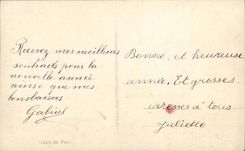 Recevez mes meilleurs
souhaits pour la
nouvelle année
ainsi que mes
bons baisers
Gabriel
Bonne et heureuse
année. Et grosses
caresses à tous
Juliette